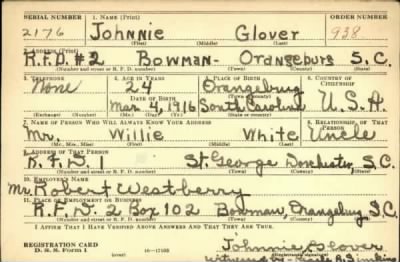 SERIAL NUMBER 1. NAME (Print) ORDER NUMBER
2176 Johnnie Glover 938
(First) (Middle) (Last)
2. ADDRESS (Print)
R.F.D. #2 Bowman - Orangeburg S.C.
(Number and street or R. F. D. number) (Town) (County) (State)
3. TELEPHONE 4. AGE IN YEARS 5. PLACE OF BIRTH 6. COUNTRY OF CITIZENSHIP
None 24 Orangeburg
DATE OF BIRTH
Mar. 4, 1916 South Carolina U.S.A.
(Exchange) (Number) (Mo.) (Day) (Yr.) (State or country)
7. NAME OF PERSON WHO WILL ALWAYS KNOW YOUR ADDRESS 8. RELATIONSHIP OF THAT PERSON
Mr. Willie White Uncle
(Mr., Mrs., Miss) (First) (Middle) (Last)
9. ADDRESS OF THAT PERSON
R.F.D. 1 St. George Dorchester, S.C.
(Number and street or R. F. D. number) (Town) (County) (State)
10. EMPLOYER'S NAME
Mr. Robert Weatberry
11. PLACE OF EMPLOYMENT OR BUSINESS
R.F.D. 2 Box 102 Bowman, Orangeburg, S.C.
(Number and street or R. F. D. number) (Town) (County) (State)
I AFFIRM THAT I HAVE VERIFIED ABOVE ANSWERS AND THAT THEY ARE TRUE.
REGISTRATION CARD
D. S. S. Form 1 (over) 16-17105 Johnnie Glover